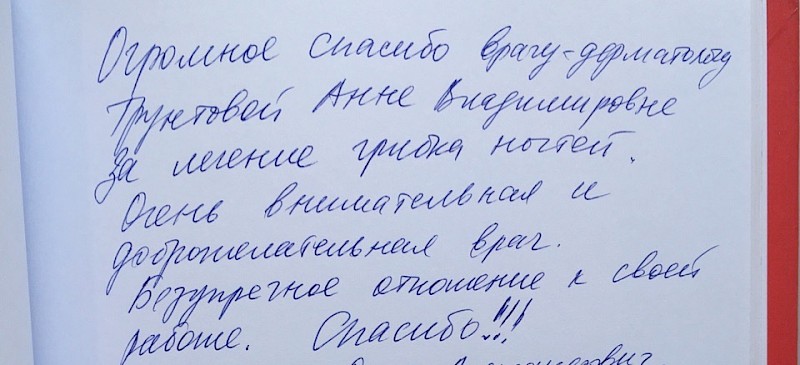 Огромное спасибо врачу-дерматологу
Трунтовой Анне Владимировне
за лечение грибка ногтей.
Очень внимательная и
доброжелательная врач.
Безупречное отношение к своей
работе. Спасибо!!!